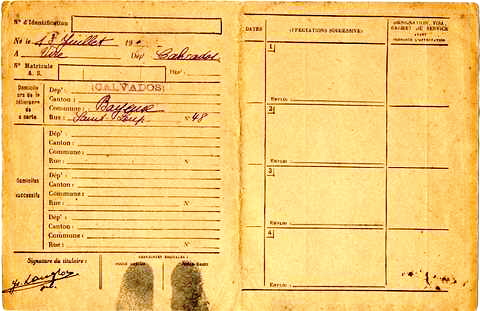 N° d'Identification
Né le 18 Juillet 19
A Vire Dép' Calvados
N° Matricule
A. S.
Dép':
Domicile
lors de la
délivrance
de la carte
Dép': (CALVADOS)
Canton:
Commune: Bayeux
Rue: Saint Loup N° 48
Domiciles
successifs
Dép':
Canton:
Commune:
Rue: N°
Dép':
Canton:
Commune:
Rue: N°
Dép':
Canton:
Commune:
Rue: N°
Signature du titulaire:
DATES
DÉSIGNATION, VISA
CACHET DU SERVICE
1
EMPLOI:
2
EMPLOI:
3
EMPLOI:
4
EMPLOI: